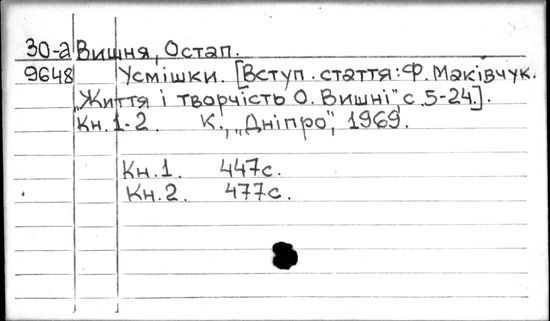 30-а Вишня, Остап.
9648 Усмішки. [Вступ. стаття: Ф. Маківчук.
„Життя і творчість О. Вишні", с. 5-24.].
Кн. 1-2. К., „Дніпро", 1969.
Кн. 1. 447с.
Кн. 2. 477с.